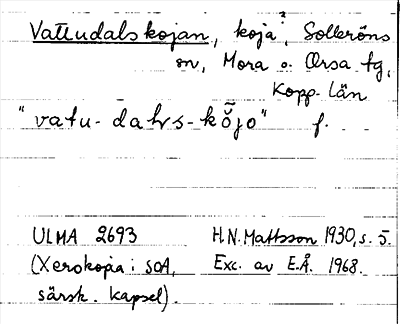 Vattudalskojan, koja?, Solleröns
sn, Mora o. Orsa tg,
Kopp. län
"vatu-dals-kojo" f.
ULMA 2693 H.N. Mattsson 1930, s. 5.
(Xerokopia i SOA, Exc. av E.Å. 1968.
särsk. kapsel).